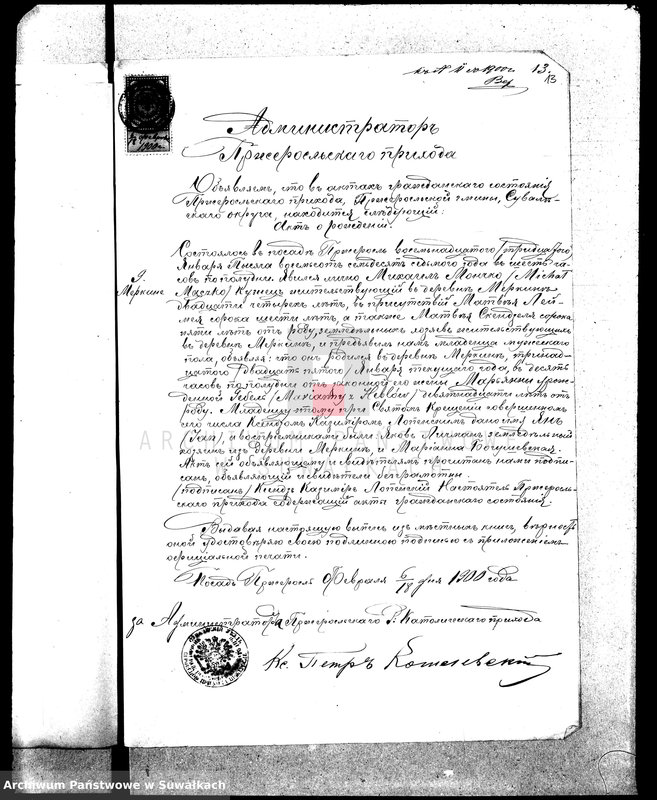 13.
13
Администраторъ
Пржеросльскаго прихода
Объявляемъ, что въ актахъ гражданскаго состоянія
Пржеросльскаго прихода, Пржеросльской гмины, Суваль-
скаго округа, находится слѣдующій:
Актъ о рожденіи.
9.
Меркине
Состоялось въ посадѣ Пржеросль восемнадцатаго /тридцатаго/
Января тысяча восемьсотъ семьдесятъ седьмого года въ шесть ча-
совъ по полудни. Явился лично Михаилъ Мончко /Michał
Mączko/ Кузнецъ жительствующій въ деревнѣ Меркине
двадцати четырехъ лѣтъ, въ присутствіи Матвѣя
сорока шести лѣтъ, а также Матвѣя сорока
пяти лѣтъ отъ роду, земледѣльцевъ хозяевъ жительствующихъ
въ деревнѣ Меркине, и предъявилъ намъ младенца мужескаго
пола, объявляя: что онъ родился въ деревнѣ Меркине, тринад-
цатаго /двадцать пятаго/ Января текущаго года, въ десять
часовъ по полудни отъ законной его жены Марьянны урож-
денной Гебель /Maryanny z Heblów/ девятнадцати лѣтъ отъ
роду. Младенцу этому при Святомъ Крещеніи совершенномъ
его числа Ксендзомъ Казиміромъ Лопенскимъ дано имя Янъ
/Jan/, и воспріемниками были Яковъ земледѣльный
хозяинъ изъ деревни Меркине, и Маріанна Богушевская.
Актъ сей объявляющему и свидѣтелямъ прочитанъ нами подпи-
санъ, объявляющій и свидѣтели безграмотны
/подписалъ/ Ксендзъ Казиміръ Лопенскій Настоятель Пржеросль-
скаго прихода содержащій акты гражданскаго состоянія.
Выдавая настоящую выпись изъ мѣстныхъ книгъ, вѣрность
оной удостовѣряю своею подлинною подписью съ приложеніемъ
оффиціальной печати.
Посадъ Пржеросль Февраля 6/18 дня 1900 года
за Администратора Пржеросльскаго Р. Католическаго прихода
Кс. Петръ
Archiwum Państwowe w Suwałkach